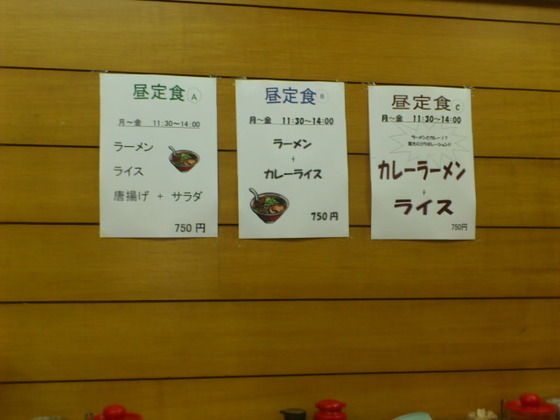 昼定食 A
月～金 11:30～14:00
ラーメン
ライス
唐揚げ + サラダ
750円
昼定食 B
月～金 11:30～14:00
ラーメン
+
カレーライス
750円
昼定食 C
月～金 11:30～14:00
ラーメンとカレー！？
驚きのコラボレーション!!
カレーラーメン
+
ライス
750円